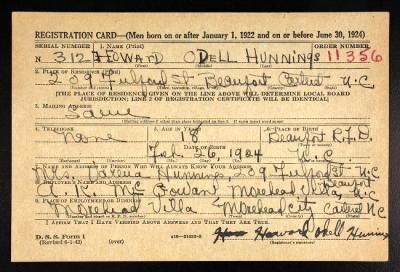 REGISTRATION CARD—(Men born on or after January 1, 1922 and on or before June 30, 1924)
SERIAL NUMBER 1. NAME (Print) ORDER NUMBER
N 312 HOWARD ODELL HUNNINGS 11356
2. PLACE OF RESIDENCE (Print)
209 Fulford St. Beaufort Carteret N.C
[THE PLACE OF RESIDENCE GIVEN ON THE LINE ABOVE WILL DETERMINE LOCAL BOARD
JURISDICTION; LINE 2 OF REGISTRATION CERTIFICATE WILL BE IDENTICAL]
3. MAILING ADDRESS
Same
4. TELEPHONE 5. AGE IN YEARS 6. PLACE OF BIRTH
None 18 Beaufort R.F.D.
DATE OF BIRTH
Feb. 26, 1924 N.C
7. NAME AND ADDRESS OF PERSON WHO WILL ALWAYS KNOW YOUR ADDRESS
Mrs. Hunnings 209 Fulford St. Beaufort N.C
8. EMPLOYER'S NAME AND ADDRESS
Morehead City N.C
9. PLACE OF EMPLOYMENT OR BUSINESS
Morehead Villa Morehead City Carteret N.C
I AFFIRM THAT I HAVE VERIFIED ABOVE ANSWERS AND THAT THEY ARE TRUE.
D. S. S. Form 1
(Revised 6-9-42) (over) Howard Odell Hunnings
(Registrant's signature)